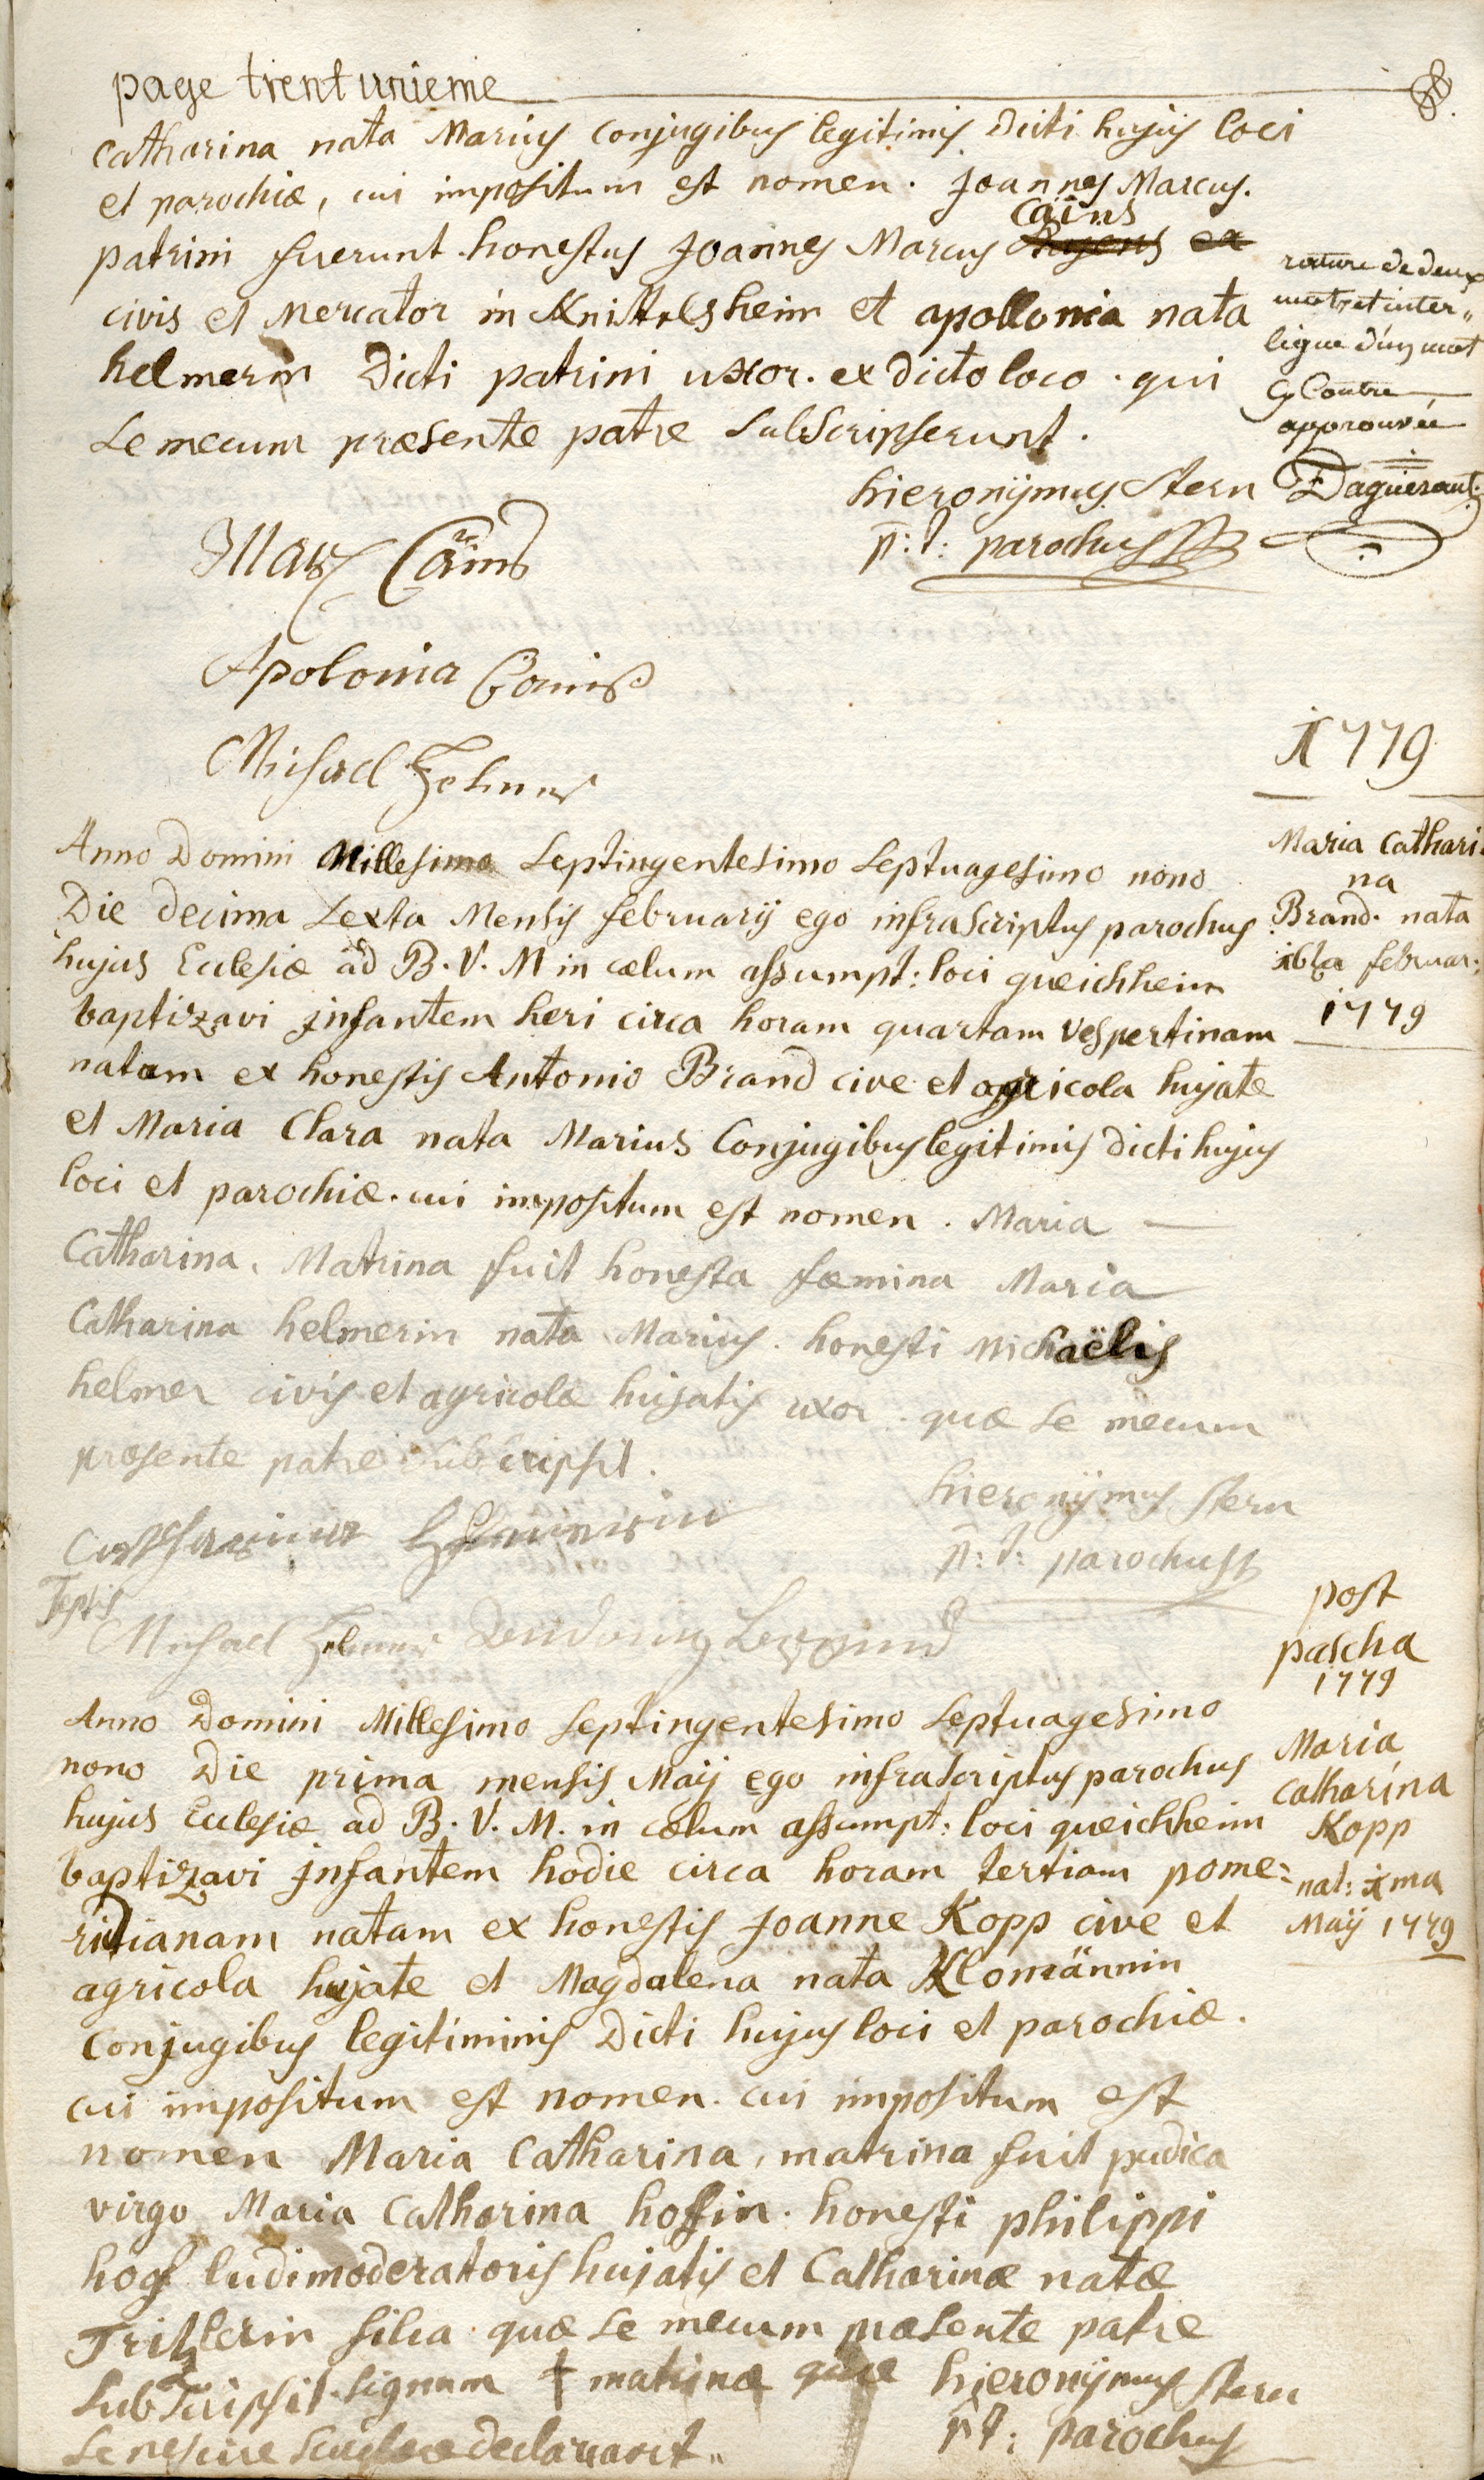 page trent unieme
Catharina nata Marius conjugibus legitimis Dicti hujus loci
et parochiæ, cui impositum est nomen. Joannes Marcus.
Cains
patrini fuerunt honestus Joannes Marcus ex
civis et Mercator in Knittelsheim et apollonia nata
helmerin Dicti patrini uxor. ex dicto loco. qui
se mecum præsente patre subscripserunt.
rature de deux
mots et inter„
ligne d'un mot
cy Contre
approuvée
Daguerant
hieronÿmus Stern
p: t: parochus
Marx Cains
Apolonia
Michael Helmer
1779
Maria Cathari
na
Brand. nata
16ta februar:
1779
Anno Domini Millesimo Septingentesimo Septuagesimo nono
Die decima Sexta Mensis februarij ego infrascriptus parochus
hujus Ecclesiæ ad B. V. M in cælum assumpt: loci queichheim
baptizavi jnfantem heri circa horam quartam vespertinam
natam ex honestis Antonio Brand cive et agricola hujate
et Maria Clara nata Marius Conjugibus legitimis dicti hujus
loci et parochiæ. cui impositum est nomen. Maria
Catharina. Matrina fuit honesta fæmina Maria
Catharina helmerin nata Marius. honesti Michaëlis
helmer civis et agricolæ hujatis uxor. quæ se mecum
præsente patre subscripsit.
hieronÿmus Stern
p: t: parochus
Catharina Helmerin
Testis
Michael Helmer
post
pascha
1779
Maria
Catharina
Kopp
nat: 1ma
Maij 1779
Anno Domini Millesimo Septingentesimo Septuagesimo
nono Die prima mensis Maij ego infrascriptus parochus
hujus Ecclesiæ ad B. V. M. in cælum assumpt: loci queichheim
baptizavi jnfantem hodie circa horam tertiam pome=
ridianam natam ex honestis Joanne Kopp cive et
agricola hujate et Magdalena nata Klomännin
Conjugibus legitiminis Dicti hujus loci et parochiæ.
cui impositum est nomen. cui impositum est
nomen Maria Catharina, matrina fuit pudica
virgo Maria Catharina hoffin. honesti philippi
hoff ludimoderatoris hujatis et Catharinæ natæ
Tritzlerin filia. quæ se mecum præsente patre
subscripsit. signum † matrinæ quæ
se nescire scribere declaravit„
hieronÿmus Stern
p t: parochus